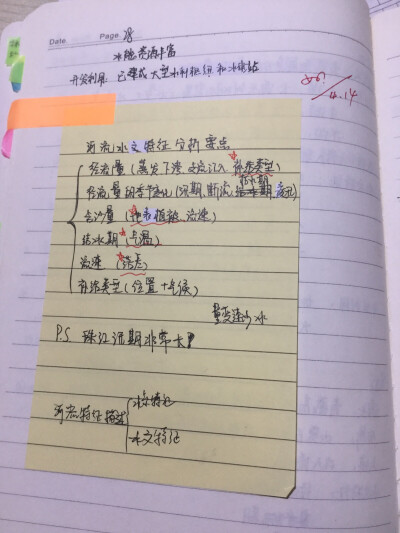 Date.
Page. 28
水能资源丰富
开发利用 已建成大型水利枢纽和水电站
4.14
河流水文特征分析要点
径流量(蒸发下渗 支流汇入 补给类型)
径流量的季节变化(汛期、断流、枯水期)
含沙量(地表植被 流速)
结冰期(气温)
流速(落差)
补给类型(位置+气候)
P.S 珠江汛期非常长!
河流特征描述
水系特征
水文特征